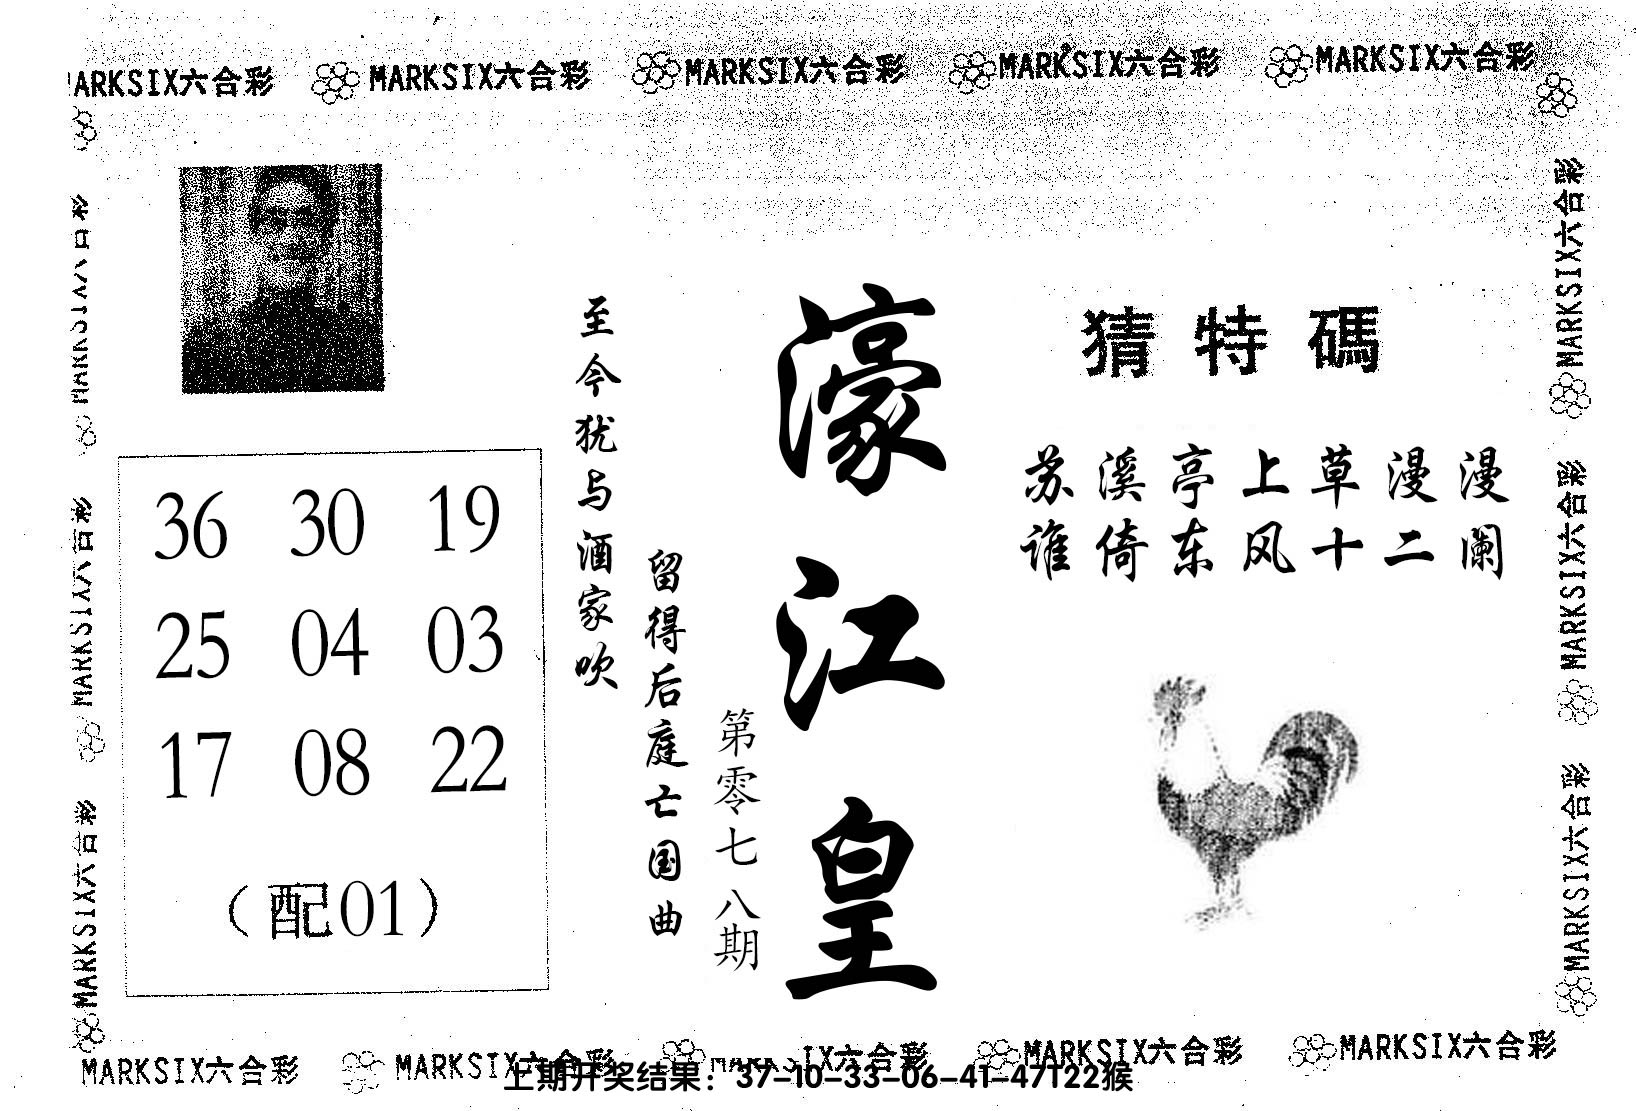 MARKSIX六合彩 MARKSIX六合彩 MARKSIX六合彩 MARKSIX六合彩 MARKSIX六合彩
猜特碼
苏溪亭上草漫漫
谁倚东风十二阑
濠江皇
第零七八期
留得后庭亡国曲
至今犹与酒家吹
36 30 19
25 04 03
17 08 22
（配01）
MARKSIX六合彩
MARKSIX六合彩
MARKSIX六合彩
MARKSIX六合彩
MARKSIX六合彩
MARKSIX六合彩
MARKSIX六合彩 MARKSIX六合彩 MARKSIX六合彩 MARKSIX六合彩 MARKSIX六合彩
上期开奖结果：37-10-33-06-41-47T22猴